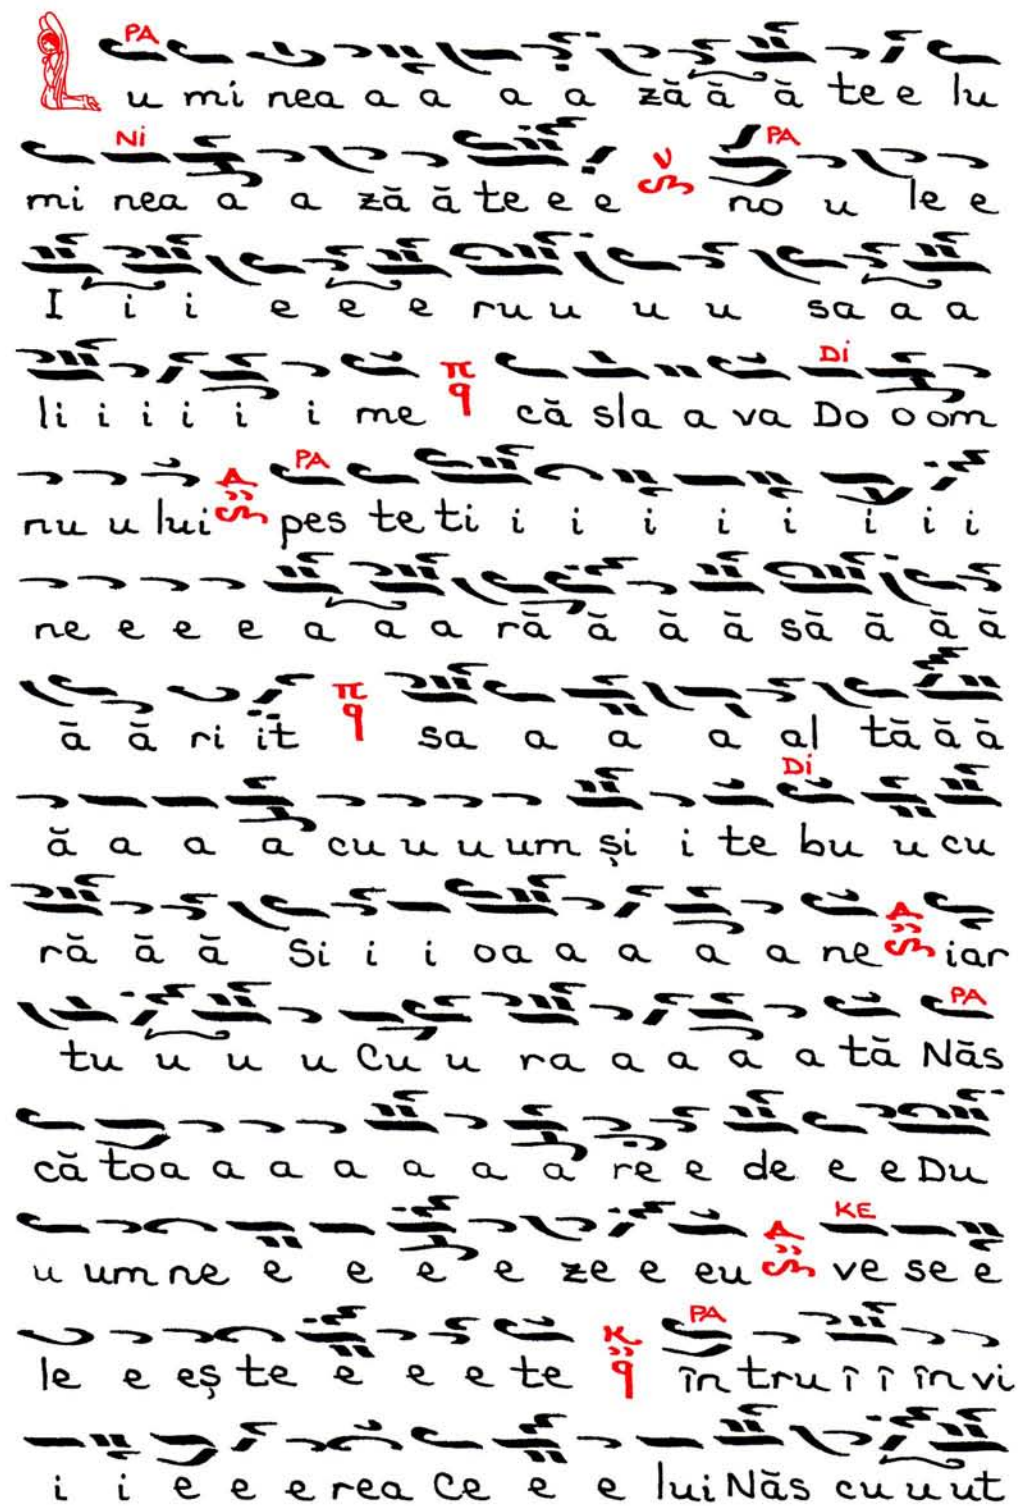 PA
L u mi nea a a a a ză ă ă te e lu
Ni PA
mi nea a a ză ă te e e ν no u le e
I i i e e e ru u u u sa a a
Di
li i i i i i me π q că sla a va Do o om
PA
nu u lui Δ pes te ti i i i i i i i i
ne e e e a a a ră ă ă ă să ă ă ă
ă ă ri it π q sa a a a al tă ă ă
Di
ă a a a cu u u um și i te bu u cu
ră ă ă Si i i oa a a a a ne Δ iar
PA
tu u u u Cu u ra a a a a tă Năs
că toa a a a a a a re e de e e Du
KE
u um ne e e e e ze e eu Δ ve se e
PA
le e eș te e e e te κ q în tru î î în vi
i i e e e rea Ce e e lui Năs cu u ut